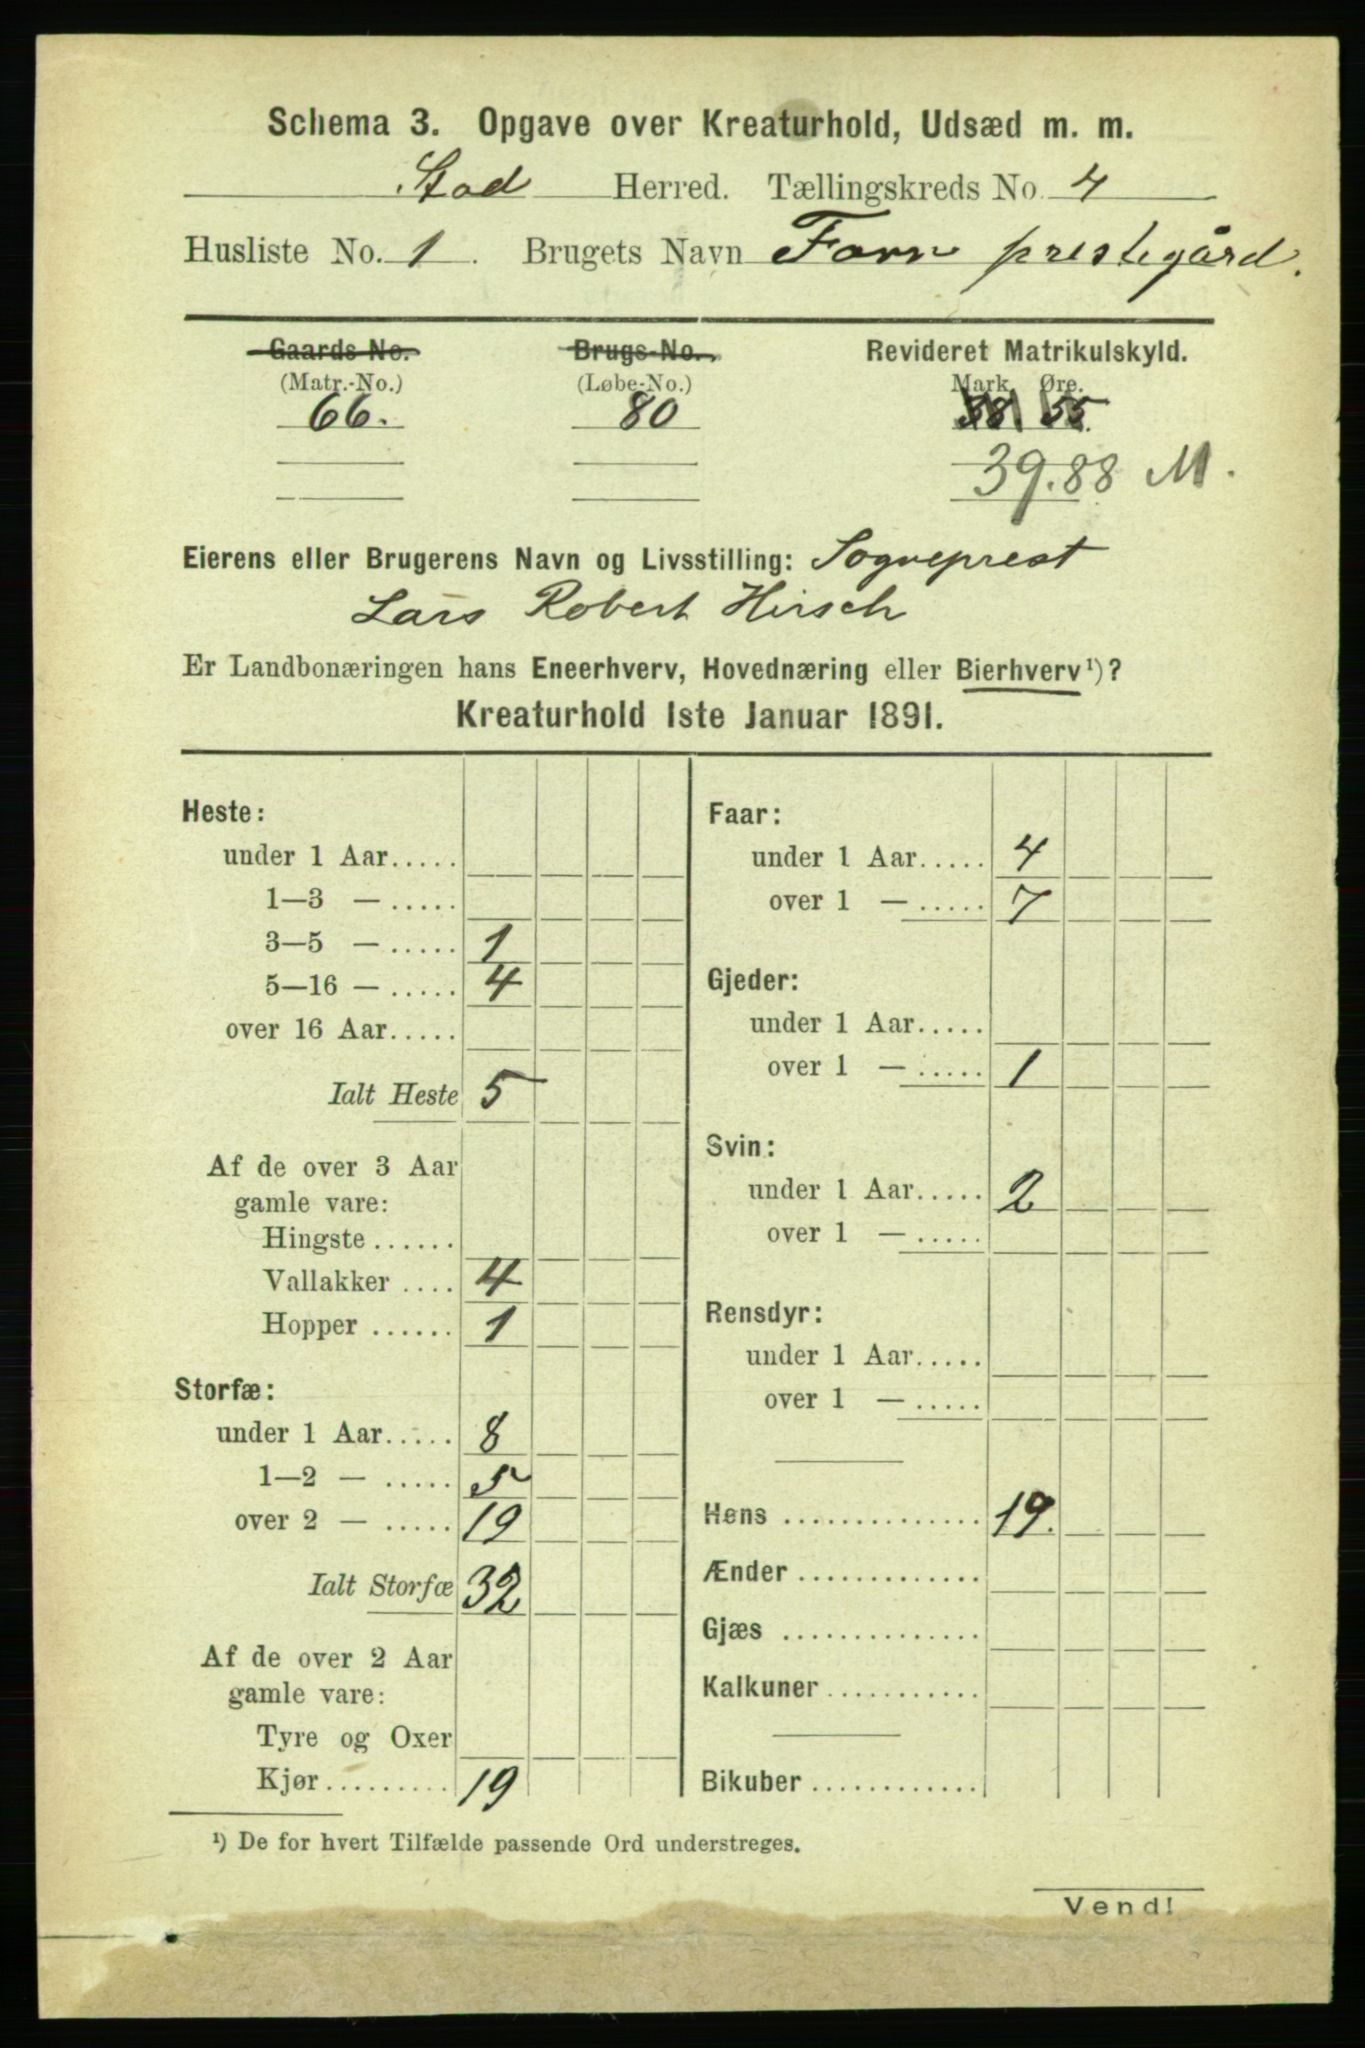 Schema 3. Opgave over Kreaturhold, Udsæd m. m.
Stod Herred. Tællingskreds No. 4
Husliste No. 1. Brugets Navn For prestegård.
Gaards-No. Brugs-No. Revideret Matrikulskyld.
(Matr.-No.) (Løbe-No.) Mark. Øre.
66. 80 38 55.
39.88 M.
Eierens eller Brugerens Navn og Livsstilling: Sogneprest
Lars Robert Hirsch
Er Landbonæringen hans Eneerhverv, Hovednæring eller Bierhverv¹)?
Kreaturhold 1ste Januar 1891.
Heste:
under 1 Aar.....
1—3 — .....
3—5 — ..... 1
5—16 — ..... 4
over 16 Aar.....
Ialt Heste 5
Af de over 3 Aar
gamle vare:
Hingste ......
Vallakker .... 4
Hopper ...... 1
Storfæ:
under 1 Aar..... 8
1—2 — ..... 5
over 2 — ..... 19
Ialt Storfæ 32
Af de over 2 Aar
gamle vare:
Tyre og Oxer
Kjør ......... 19
Faar:
under 1 Aar..... 4
over 1 — ..... 7
Gjeder:
under 1 Aar.....
over 1 — ..... 1
Svin:
under 1 Aar..... 2
over 1 — .....
Rensdyr:
under 1 Aar.....
over 1 — .....
Høns .............. 19.
Ænder .............
Gjæs ..............
Kalkuner ...........
Bikuber ............
¹) De for hvert Tilfælde passende Ord understreges.
Vend!